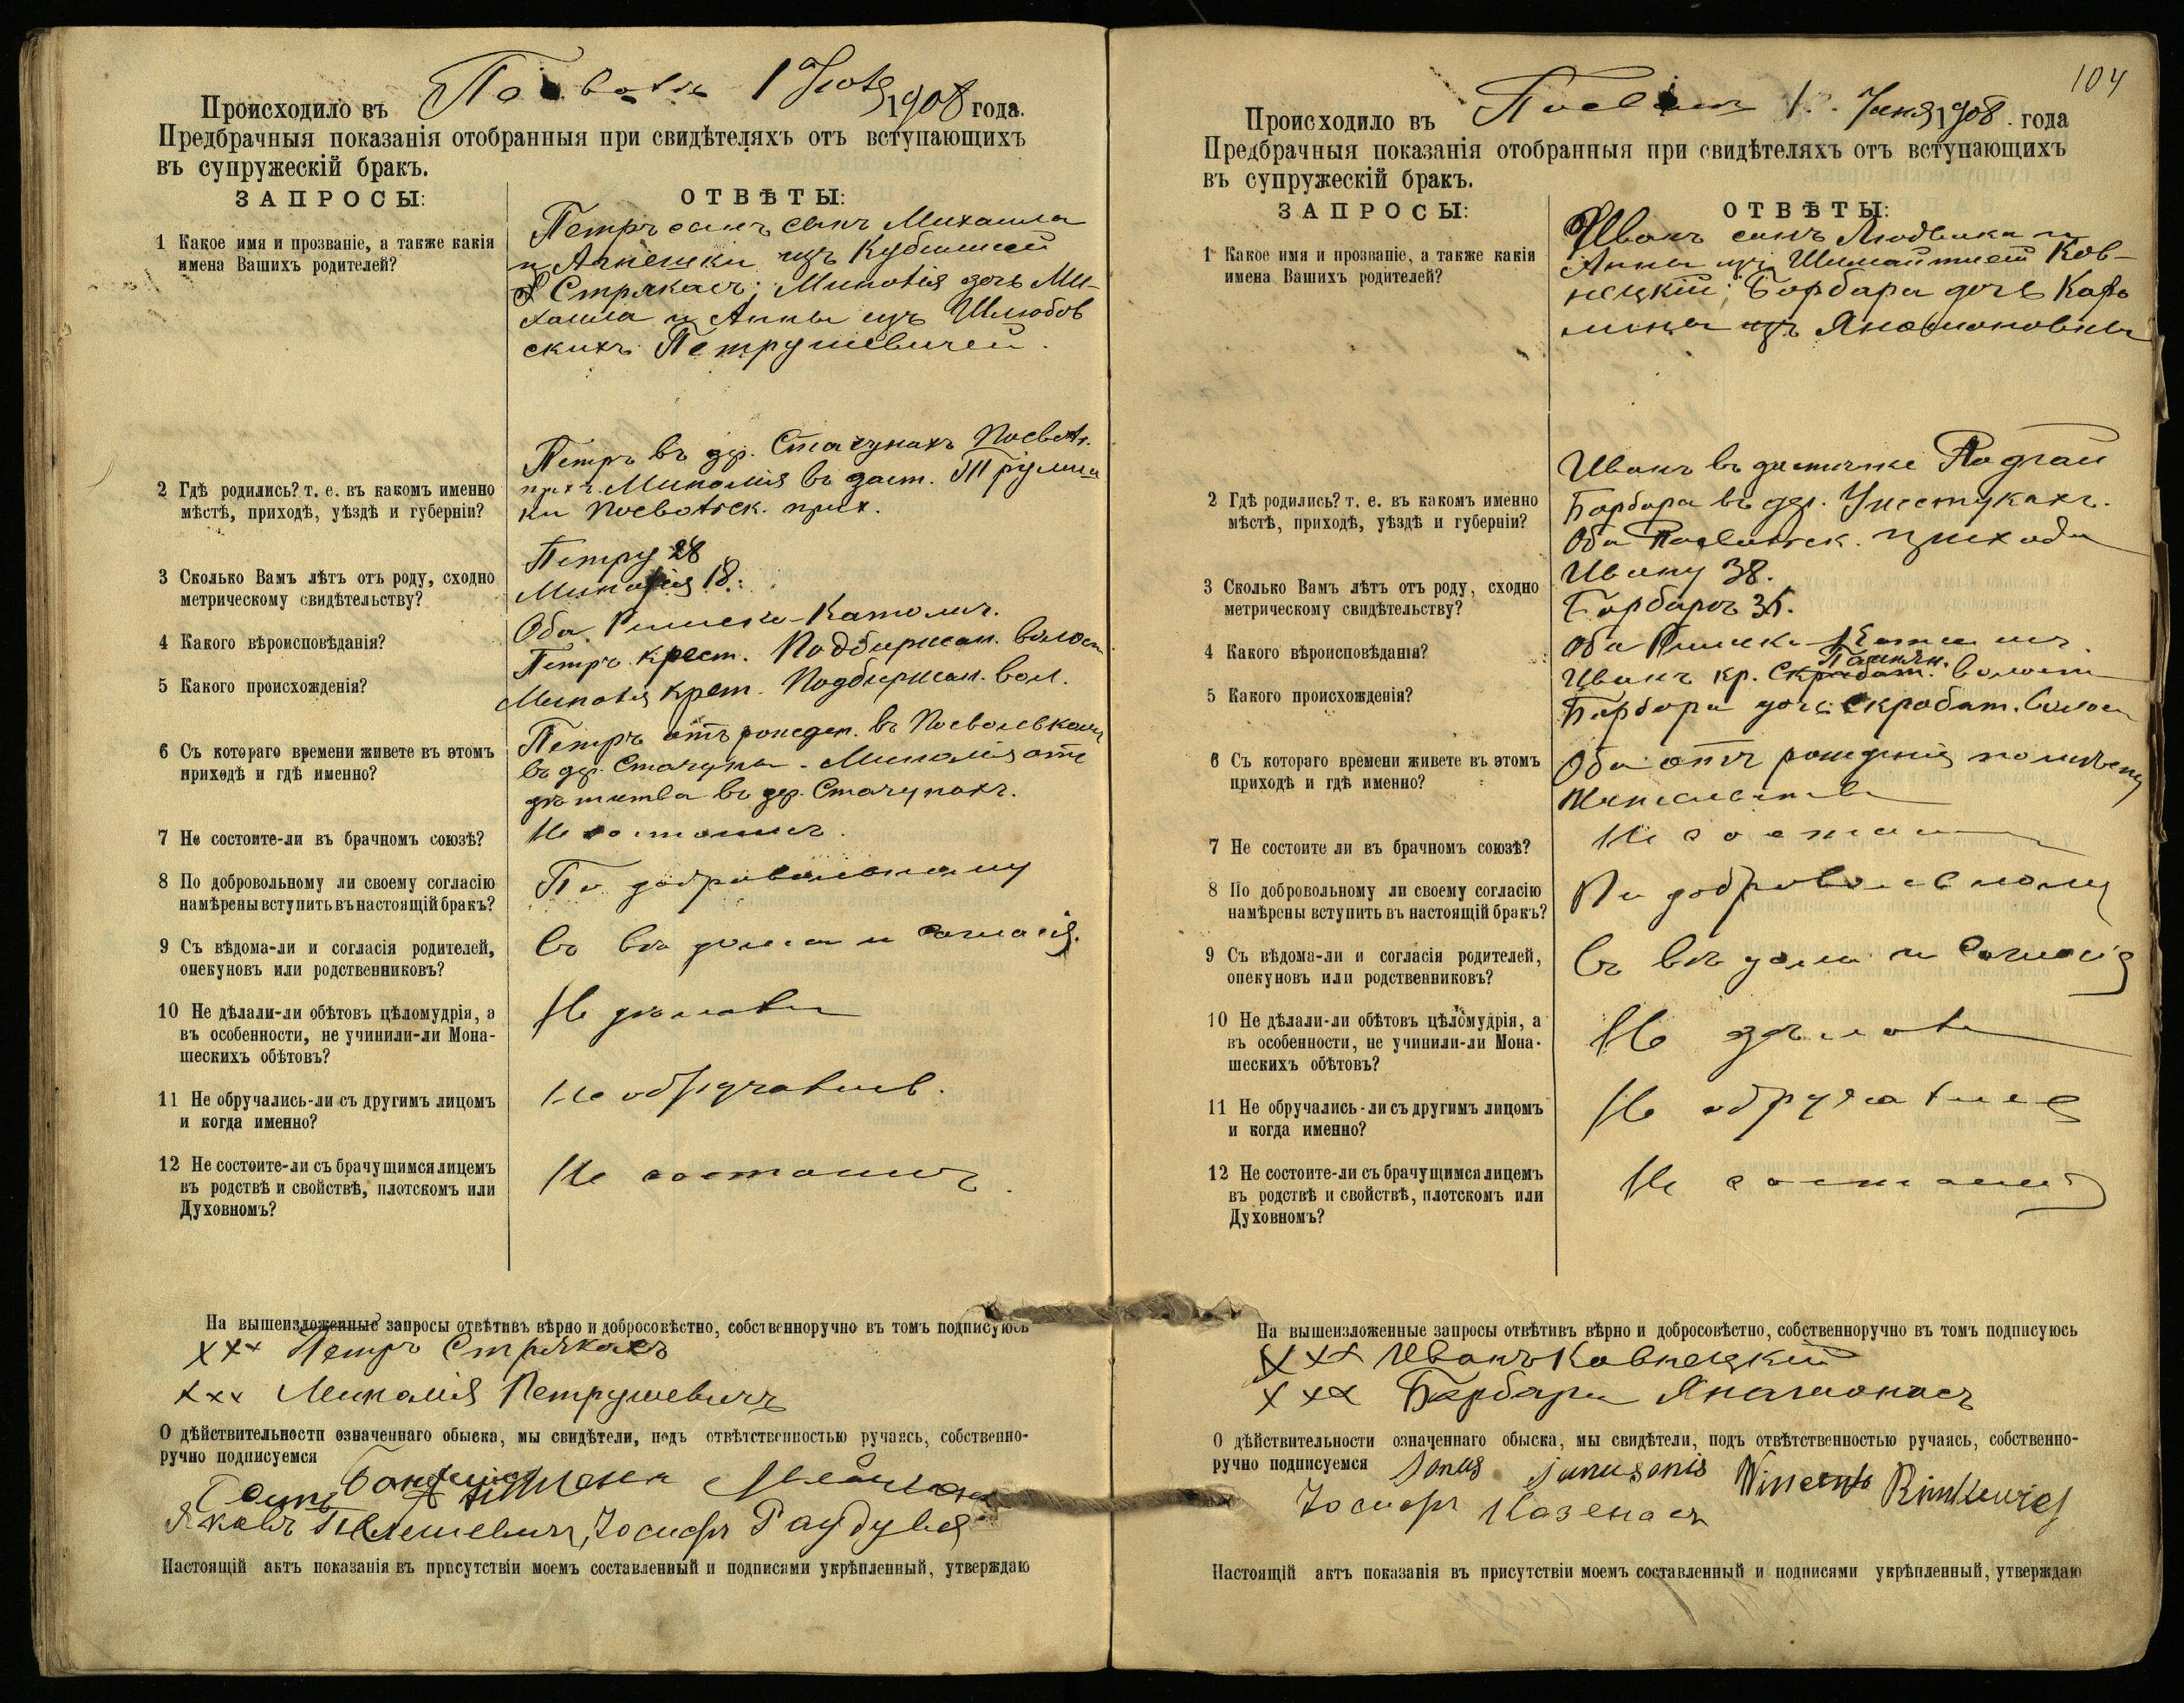 Происходило въ 1 1908 года.
Предбрачныя показанія отобранныя при свидѣтеляхъ отъ вступающихъ
въ супружескій бракъ.
ЗАПРОСЫ:
ОТВѢТЫ:
1 Какое имя и прозваніе, а также какія
имена Вашихъ родителей?
Петръ сынъ Михаила
и Агнешки изъ
Стракасъ; дочь Ми-
хаила и Анны изъ Шлюбов
скихъ Петрушевичей.
2 Гдѣ родились? т. е. въ какомъ именно
мѣстѣ, приходѣ, уѣздѣ и губерніи?
Петръ въ др. Стачунахъ
прих. въ заст.
ки прих.
3 Сколько Вамъ лѣтъ отъ роду, сходно
метрическому свидѣтельству?
Петру 28
18.
4 Какого вѣроисповѣданія?
Оба Римско-Католич.
5 Какого происхожденія?
Петръ крест. Подбержан. волост
крест. Подбержан. вол.
6 Съ котораго времени живете въ этомъ
приходѣ и гдѣ именно?
Петръ отъ рожден. въ
въ др. Стачуны. отъ
дѣтства въ др. Стачунахъ.
7 Не состоите-ли въ брачномъ союзѣ?
Не состоимъ.
8 По добровольному ли своему согласію
намѣрены вступить въ настоящій бракъ?
По добровольному
9 Съ вѣдома-ли и согласія родителей,
опекуновъ или родственниковъ?
Съ вѣдома и согласія.
10 Не дѣлали-ли обѣтовъ цѣломудрія, а
въ особенности, не учинили-ли Мона-
шескихъ обѣтовъ?
Не дѣлали
11 Не обручались-ли съ другимъ лицомъ
и когда именно?
Не обручались.
12 Не состоите-ли съ брачущимся лицемъ
въ родствѣ и свойствѣ, плотскомъ или
Духовномъ?
Не состоимъ.
На вышеизложенные запросы отвѣтивъ вѣрно и добросовѣстно, собственноручно въ томъ подписуюсь
xxx Петръ Стракасъ
xxx Петрушевичъ
О дѣйствительности означеннаго обыска, мы свидѣтели, подъ отвѣтственностью ручаясь, собственно-
ручно подписуемся
Яковъ Іосифъ
Настоящій актъ показанія въ присутствіи моемъ составленный и подписями укрѣпленный, утверждаю
104
Происходило въ 1. 1908. года
Предбрачныя показанія отобранныя при свидѣтеляхъ отъ вступающихъ
въ супружескій бракъ.
ЗАПРОСЫ:
ОТВѢТЫ:
1 Какое имя и прозваніе, а также какія
имена Вашихъ родителей?
Иванъ сынъ Людвика и
Анны изъ Ков-
нецкій; Барбара дочь Каро
лины изъ
2 Гдѣ родились? т. е. въ какомъ именно
мѣстѣ, приходѣ, уѣздѣ и губерніи?
Иванъ въ
Барбара въ др.
Оба прихода
3 Сколько Вамъ лѣтъ отъ роду, сходно
метрическому свидѣтельству?
Ивану 38.
Барбарѣ
4 Какого вѣроисповѣданія?
Оба Римско-Католич
5 Какого происхожденія?
Иванъ кр. волости
Барбара Скробот. волости
6 Съ котораго времени живете въ этомъ
приходѣ и гдѣ именно?
Оба отъ рожденія по мѣсту
жительства
7 Не состоите ли въ брачномъ союзѣ?
Не состоимъ
8 По добровольному ли своему согласію
намѣрены вступить въ настоящій бракъ?
По добровольному
9 Съ вѣдома-ли и согласія родителей,
опекуновъ или родственниковъ?
Съ вѣдома и согласія
10 Не дѣлали-ли обѣтовъ цѣломудрія, а
въ особенности, не учинили-ли Мона-
шескихъ обѣтовъ?
Не дѣлали
11 Не обручались-ли съ другимъ лицомъ
и когда именно?
Не обручались
12 Не состоите-ли съ брачущимся лицемъ
въ родствѣ и свойствѣ, плотскомъ или
Духовномъ?
Не состоимъ
На вышеизложенные запросы отвѣтивъ вѣрно и добросовѣстно, собственноручно въ томъ подписуюсь
xxx Иванъ Ковнецкій
xxx Барбара
О дѣйствительности означеннаго обыска, мы свидѣтели, подъ отвѣтственностью ручаясь, собственно-
ручно подписуемся
Іосифъ Казенасъ
Настоящій актъ показанія въ присутствіи моемъ составленный и подписями укрѣпленный, утверждаю